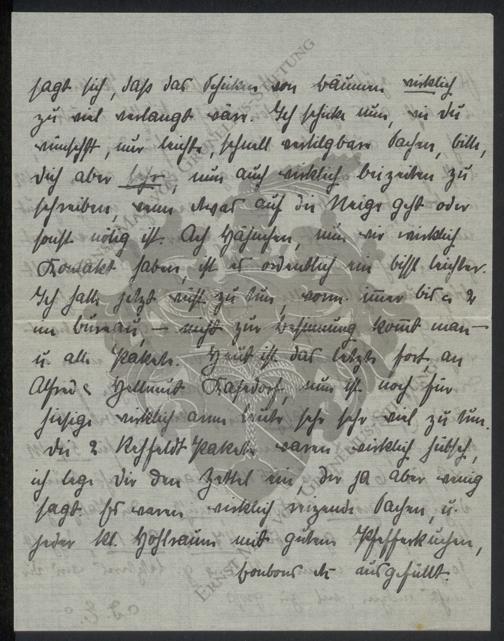 sagt sich, daß das Schicken von Bäumen wirklich
zu viel verlangt wäre. Ich schicke nun, wie Du
wünschst, nur leichte, schnell vertilgbare Sachen, bitte,
Dich aber sehr, nun auch wirklich beizeiten zu
schreiben, wenn etwas auf die Neige geht oder
sonst nötig ist. Ach Hänschen, nun wir wirklich
Kontakt haben, ist es ordentlich ein bissl leichter.
Ich habe jetzt viel zu tun, vorm. immer bis 2
im Bureau, — nicht zur Besinnung kommt man —
u. alle Pakete. Heut ist das letzte fort an
Alfred & Hellmut Kasdorf, nun ist noch für
hiesige wirklich arme Leute sehr sehr viel zu tun.
Die 2 Rehfeldt Pakete waren wirklich hübsch,
ich lege Dir den Zettel ein, der ja aber wenig
sagt. Es waren wirklich reizende Sachen, u.
jeder kl. Hohlraum mit gutem Pfefferkuchen,
Bonbons etc ausgefüllt.
ERNST MORITZ VON
STIFTUNG